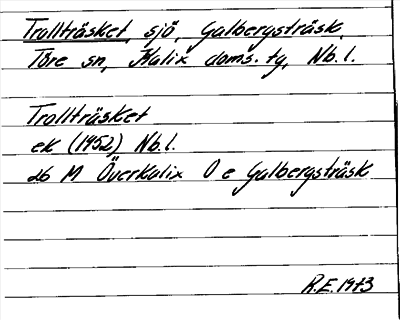 Trollträsket, sjö, Galbergsträsk,
Töre sn, Kalix doms. tg, Nb. l.
Trollträsket
ek (1952) Nb.l.
26 M Överkalix O e Galbergsträsk
R.E. 1973